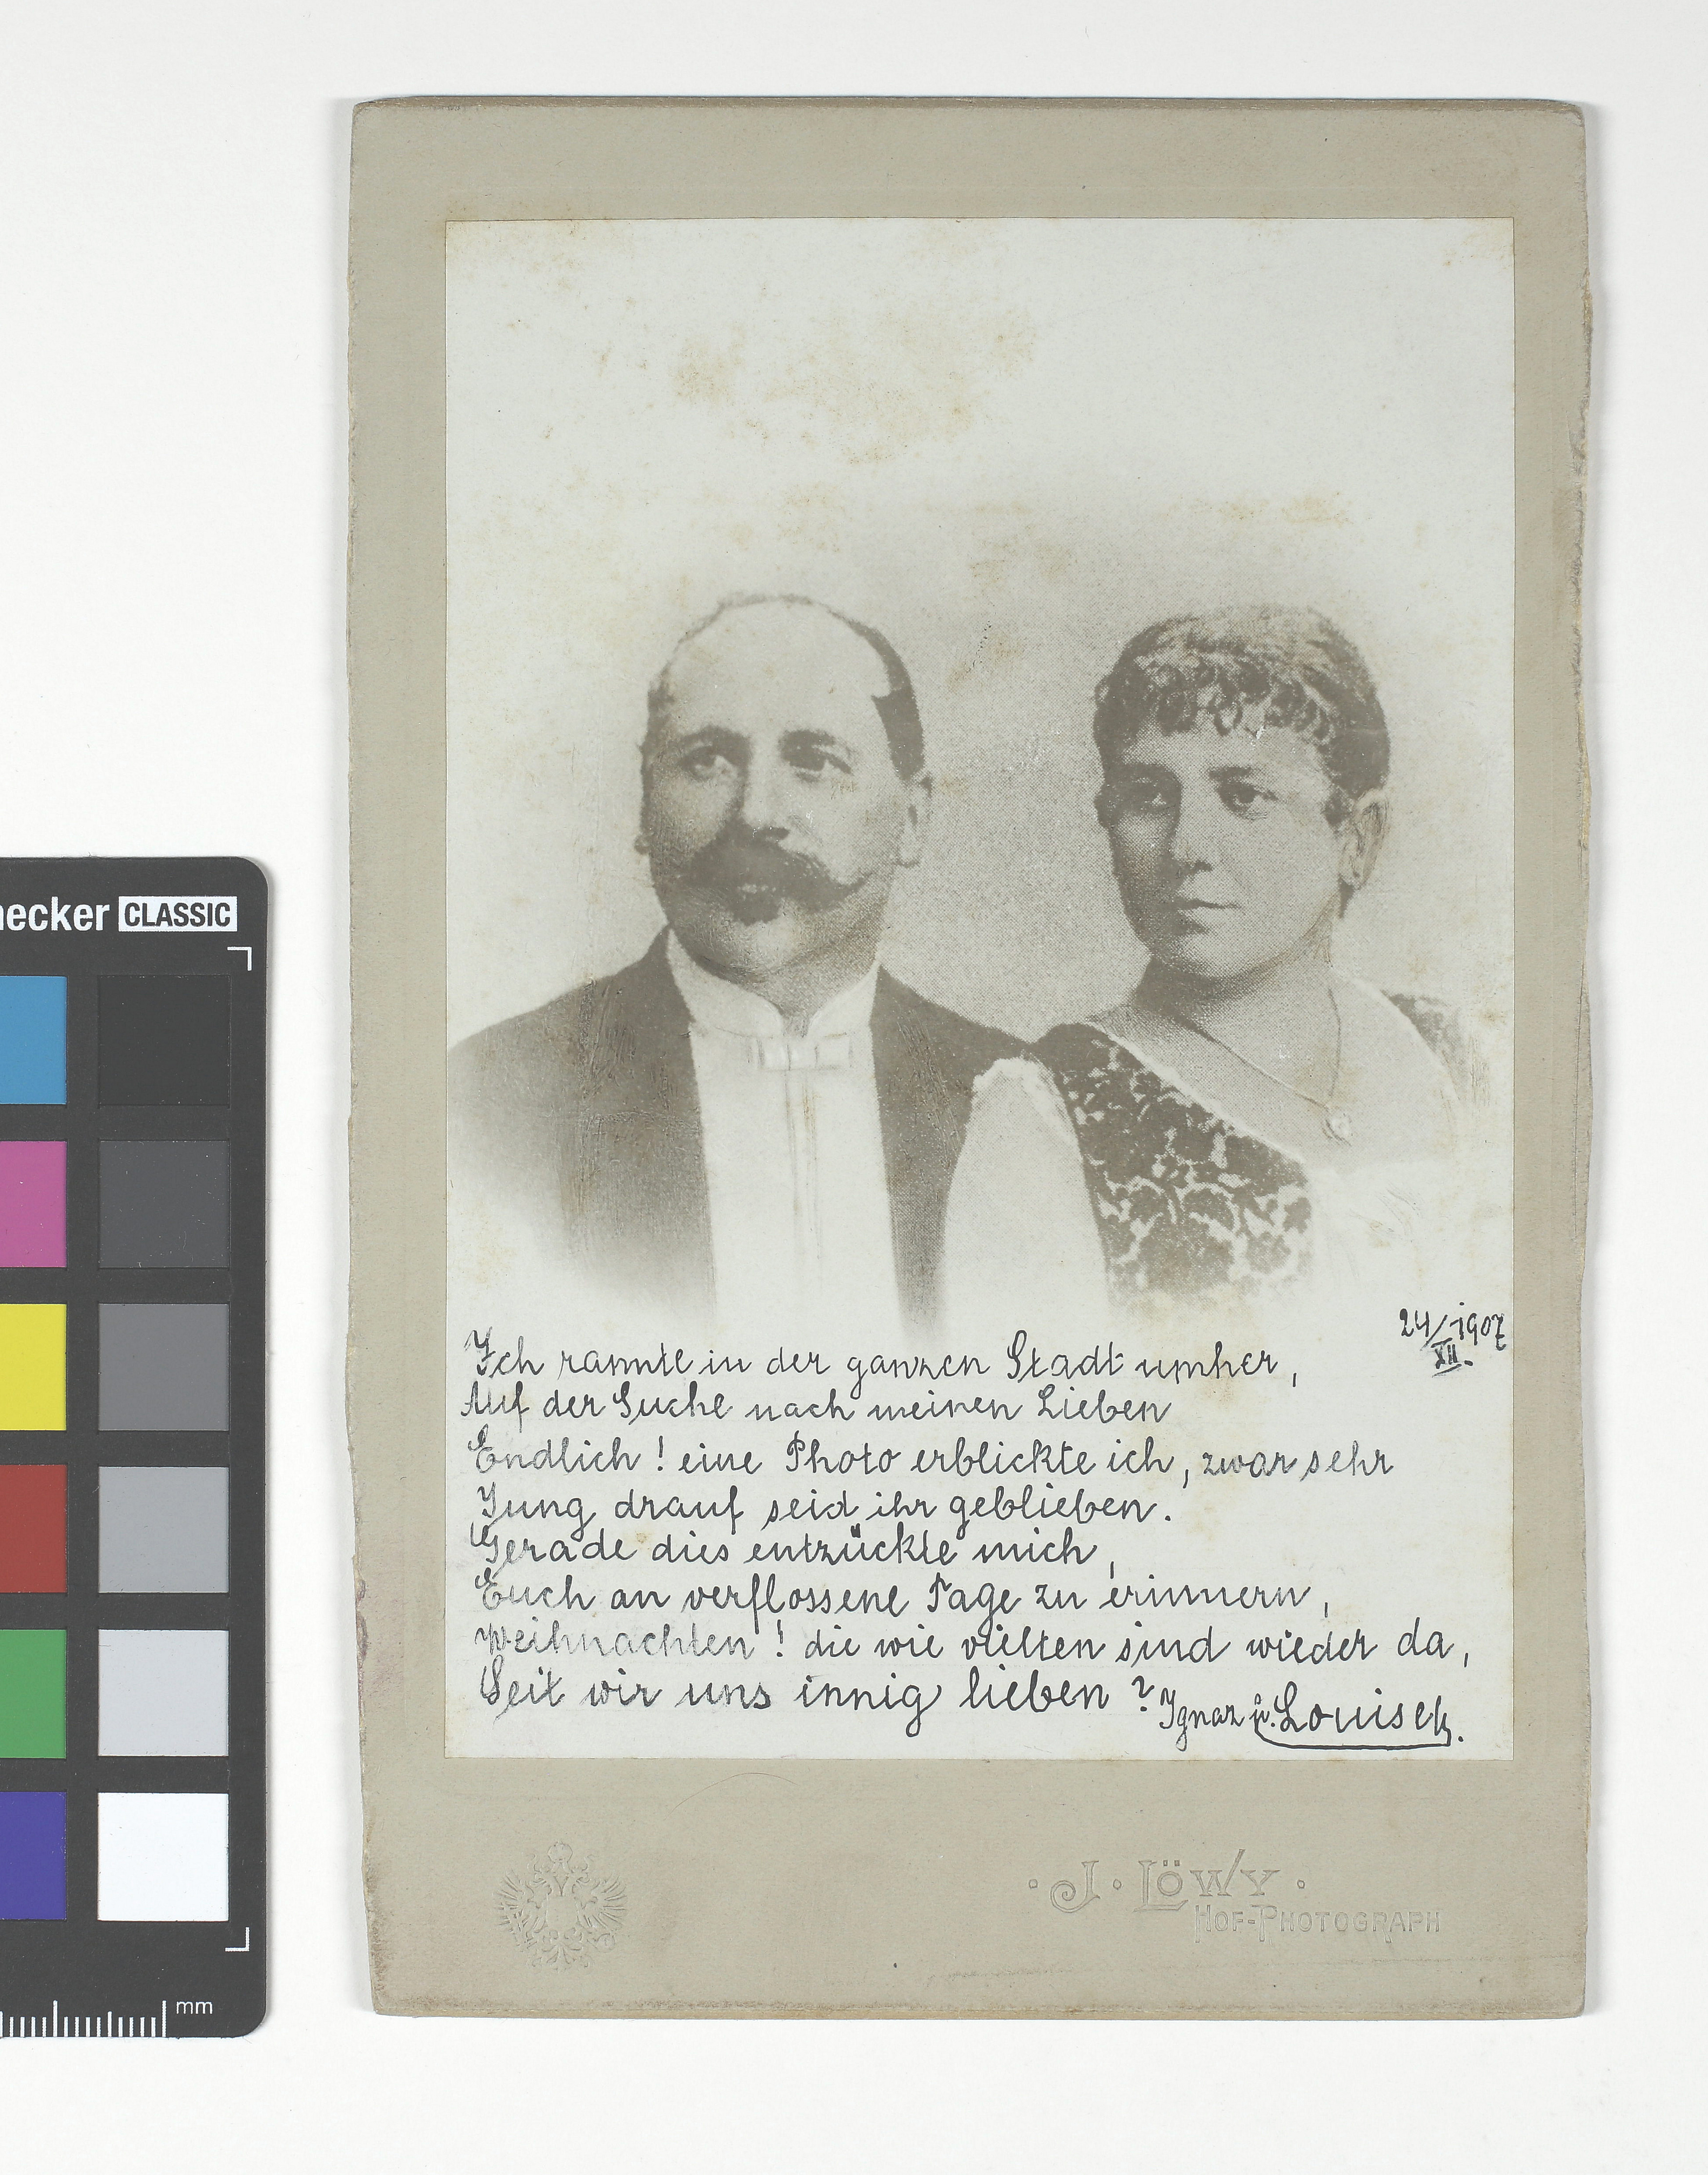 hecker CLASSIC
24/XII. 1907
Ich rannte in der ganzen Stadt umher,
Auf der Suche nach meinen Lieben
Endlich! eine Photo erblickte ich, zwar sehr
Jung drauf seid ihr geblieben.
Gerade dies entzückte mich,
Euch an verflossene Tage zu erinnern,
Weihnachten! die wie vielten sind wieder da,
Seit wir uns innig lieben?
Ignaz u. Louisek.
J. Löwy.
Hof-Photograph
mm